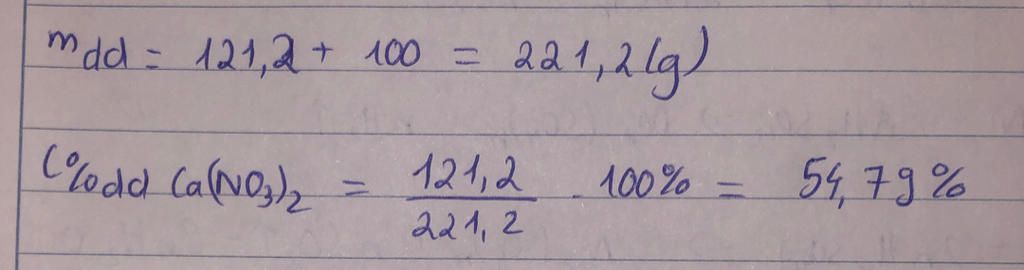 mdd = 121,2 + 100 = 221,2 (g)
C%dd Ca(NO3)2 = 121,2 / 221,2 . 100% = 54,79%